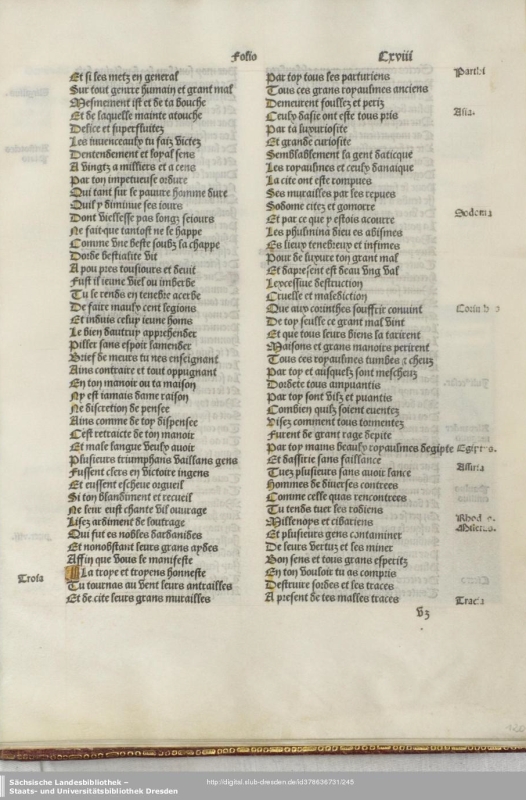 Folio Cxviii
Et si les metz en general
Sur tout genrre humain et grant mal
Mesmement ist et de ta bouche
Et de laquelle mainte atouche
Delice et superfluitez
Les iuuenceaulx tu faiz victez
Dentendement et loyal sens
A vingtz a milliers et a cens
Par ton impetueuse ordure
Qui tant sur le pauure homme dure
Quil y diminue ses iours
Dont viellesse pas longz seiours
Ne fait que tantost ne le happe
Comme vne beste soubz sa chappe
Dorde bestialite vit
A pou pres tousiours et deuit
Fust il ieune viel ou imberbe
Tu le rendz en tenebre acerbe
De faire maulx cent legions
Et induis celuy ieune homs
Le bien daultruy apprehender
Piller sans espoir lamender
Brief de meurs tu nes enseignant
Ains contraire et tout oppugnant
En ton manoir ou ta maison
Ny est iamais dame raison
Ne discretion de pensee
Ains comme de toy dispensee
Cest retraicte de ton manoir
Et male langue veulx auoir
Plusieurs triumphans vaillans gens
Fussent clers en victoire ingens
Et eussent escheue orgueil
Si ton blandiment et recueil
Ne leur eust chante vil ouurage
Lisez ardiment de loutrage
Qui fut es nobles dardanides
Et nonobstant leurs grans aydes
Affin que vous le manifeste
A la troye et troyens honneste
Troia
Tu tournas au vent leurs antrailles
Et de cite leurs grans murailles
Par toy tous les parturiens
Parthi
Tous ces grans royaulmes anciens
Demeurent foullez et periz
Ceulx dasie ont este tous pris
Asia.
Par ta luxuriosite
Et grande curiosite
Semblablement la gent daticque
Les royaulmes et ceulx danaique
La cite ont este rompues
Ses murailles par les repues
Sodome citez et gomorre
Et par ce que y estois acourre
Sodoma
Les phulmina dieu es abismes
Es lieux tenebreux et infimes
Pour de luxure ton grant mal
Et dapresent est beau vng val
Lexcessiue destruction
Cruelle et malediction
Que aux corinthes souffrir conuint
De toy seulle ce grant mal vint
Et que tous leurs biens la tarirent
Maisons et grans manoirs perirent
Tous ces royaulmes tumbez et cheuz
Par toy et ausquelz sont mescheuz
Dordete tous ampuantis
Par toy sont vilz et puantis
Combien quilz soient euentez
Visez comment tous tormentez
Furent de grant rage depite
Par toy mains beaulx royaulmes degipte
Et dassirie sans faillance
Assiria
Tuez plusieurs sans auoir lance
Hommes de diuerses contrees
Comme celle quas rencontrees
Tu tendz tuer les rodiens
Millenoys et cibariens
Et plusieurs gens contaminer
De leurs vertuz et les miner
Bon sens et tous grans esperitz
En ton vouloir tu as compris
Destruire foides et les traces
A present de tes malles traces
Tracia
v3
Sächsische Landesbibliothek –
Staats- und Universitätsbibliothek Dresden
http://digital.slub-dresden.de/id378636731/245